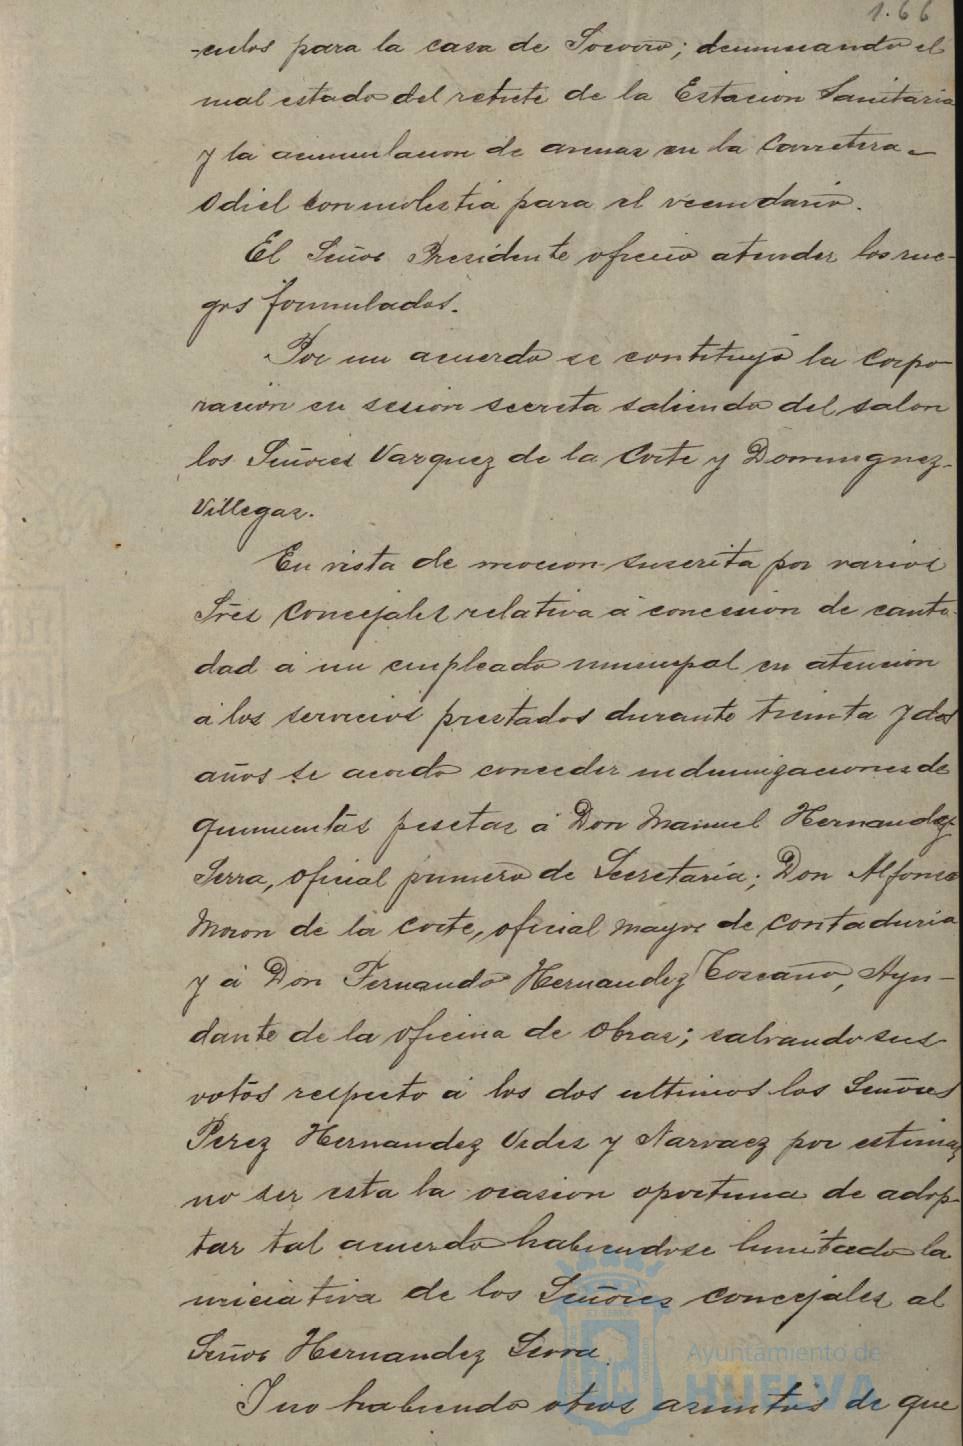 1.66
-culos para la casa de Socorro; denunciando el
mal estado del retrete de la Estacion Sanitaria
y la acumulacion de arenas en la Carretera
Odiel con molestia para el vecindario.
El Señor Presidente ofreció atender los rue-
gos formulados.
Por un acuerdo se contituyó la Corpo-
ración en sesion secreta saliendo del salon
los Señores Vazquez de la Corte y Dominguez-
Villegas.
En vista de mocion suscrita por varios
Sres Concejales relativa á concesion de canti-
dad á un empleado municipal en atencion
á los servicios prestados durante treinta y dos
años se acordó conceder indemnizaciones de
quinientas pesetas á Don Manuel Hernandez
Serra, oficial primero de Secretaría; Don Alfonso
Moron de la Corte, oficial mayor de Contaduria
y á Don Fernando Hernandez Toscano, Ayu-
dante de la oficina de Obras; salvando sus
votos respecto á los dos ultimos los Señores
Perez Hernandez Vides y Narvaez por estimar
no ser esta la ocasion oportuna de adop-
tar tal acuerdo habiendose limitado la
iniciativa de los Señores concejales al
Señor Hernandez Serra.
Y no habiendo otros asuntos de que
Ayuntamiento de
HUELVA